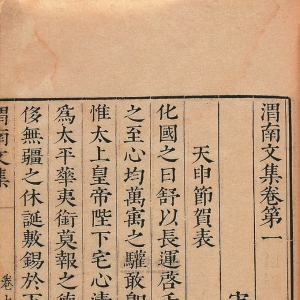 渭南文集卷第一
宋
天申節賀表
化國之日舒以長運啓千
之至心均萬寓之驩敢卽
惟太上皇帝陛下宅心清
爲太平華夷銜莫報之德
侈無疆之休誕敷錫於下
渭南文集
卷